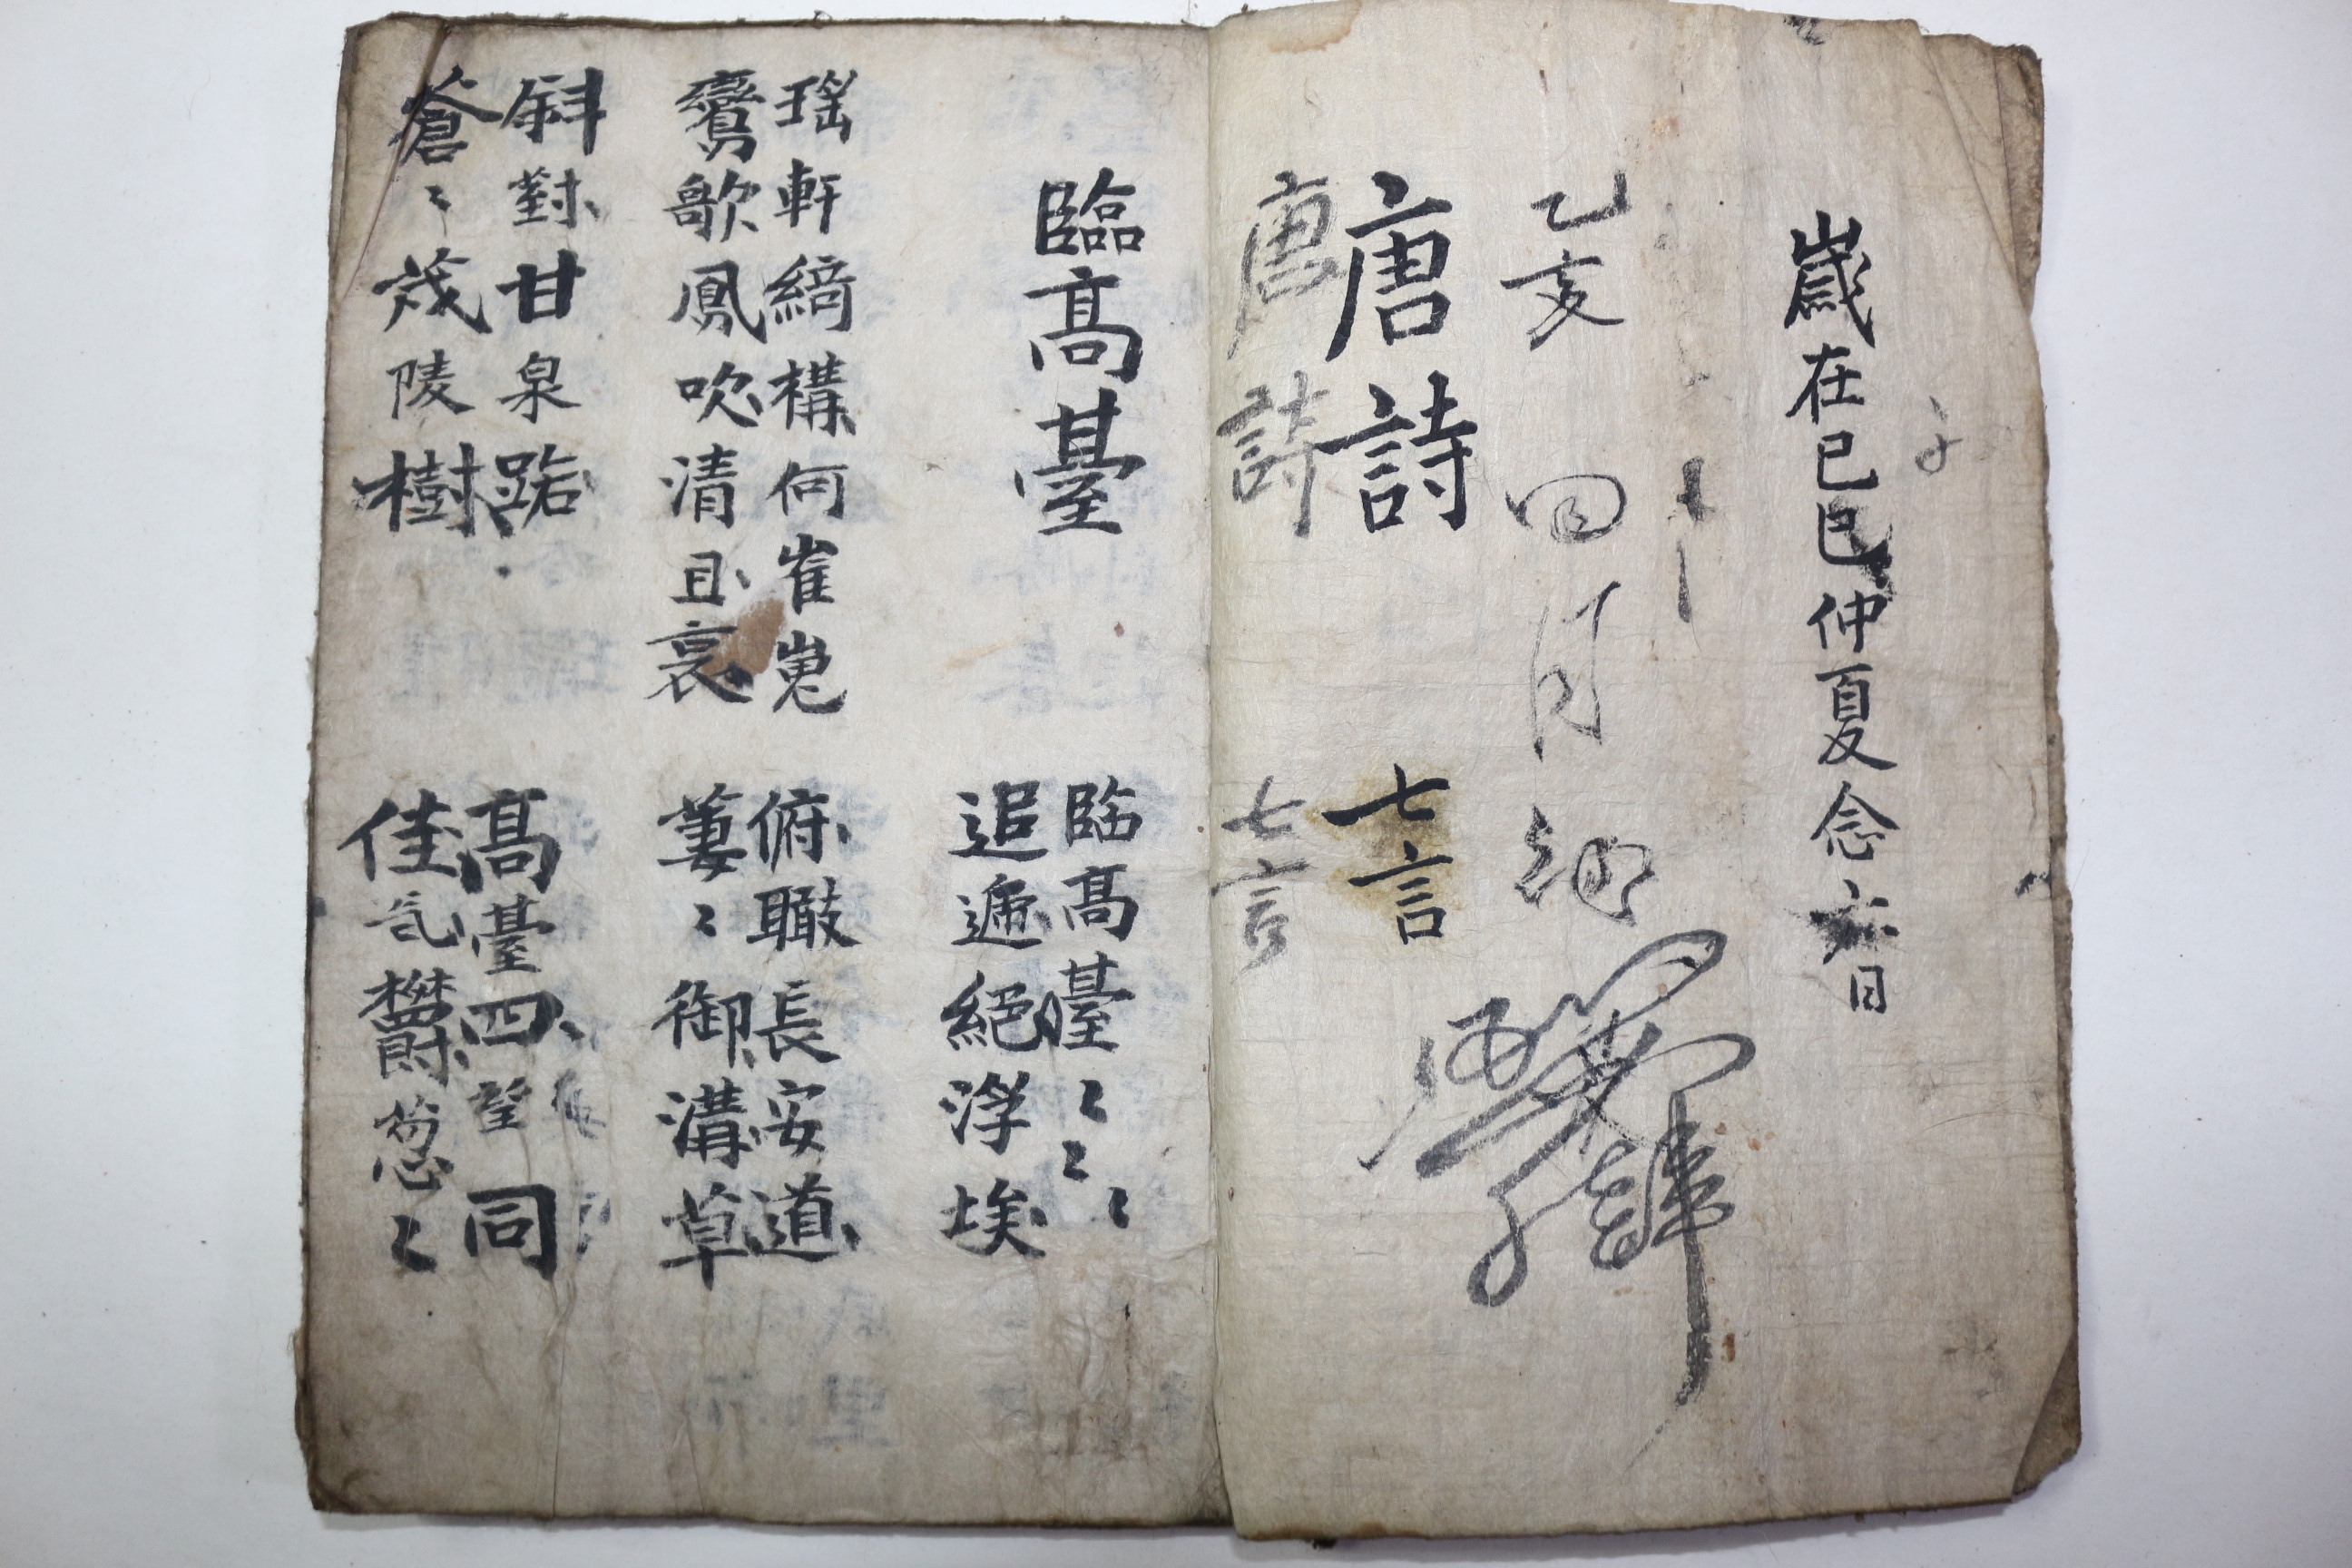 歲在己巳仲夏念六日
乙亥 四月
唐詩 七言
唐詩 七言
臨高臺
臨高臺〻〻〻
追遞絕浮埃
瑤軒綺構何崔嵬
鸞歌鳳吹清且哀
俯瞰長安道
萋〻御溝草
斜對甘泉路
蒼〻茂陵樹
高臺四望同
佳气鬱葱〻